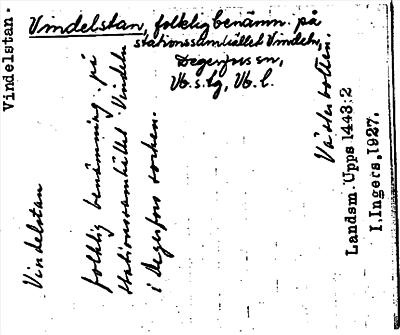 Vindelstan.
Vindelstan, folklig benämn. på
stationssamhället Vindeln,
Degerfors sn,
Vb. s. lg, Vb. l.
Västerbotten.
Vindelstan
folklig benämning på
stationssamhället Vindeln
i Degerfors socken.
Landsm. Upps 1443:2
I. Ingers, 1927.